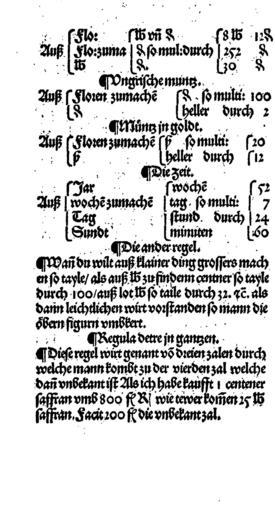 Flo: ℔ vñ ₰ 8 ℔ 12₰
Auß Flo: zuma ₰ so mul: durch 252 ₰
℔ ₰. 30 ₰
¶Vngrische muntz.
Auß Floren zumachē ₰ . so multi: 100
₰ heller durch 2
¶Müntz in goldt.
Auß Floren zumachē ß so multi: 20
ß heller durch 12
¶Die zeit.
Jar wochē 52
Auß wochē zumachē tag . so multi: 7
Tag stund . durch 24
Stundt minuten 60
¶Die ander regel.
¶Wañ du wilt auß klainer ding grossers mach
en so tayle/ als auß ℔ zu findenn centner so tayle
durch 100/ auß lot ℔ so taile durch 32. ꝛc. als
dann leichtlichen wirt vorstanden so mann die
öbern figurn vmbkert.
¶Regula detre in gantzen.
¶Diese regel wirt genant vō dreien zalen durch
welche mann kombt zu der vierden zal welche
dañ vnbekant ist Als ich habe kaufft 1 centener
saffran vmb 800 fl R/ wie tewer kom̄en 25 ℔
saffran. Facit 200 fl die vnbekant zal.